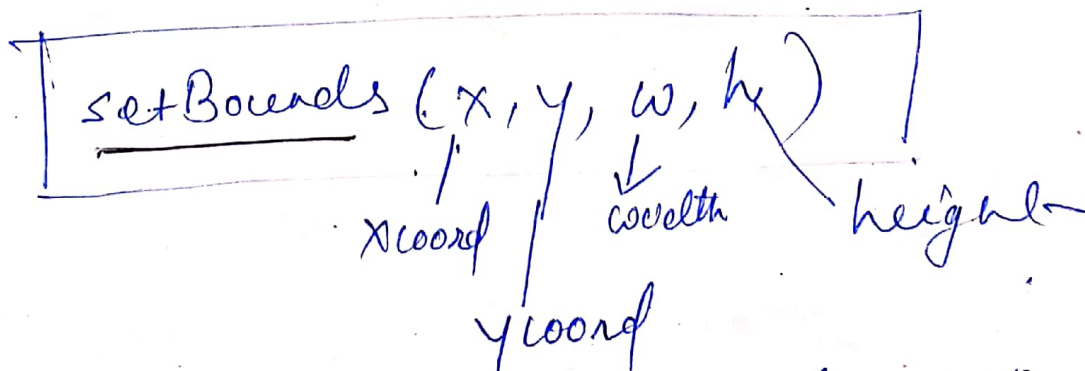 setBounds (x, y, w, h)
xcoord width height
ycoord